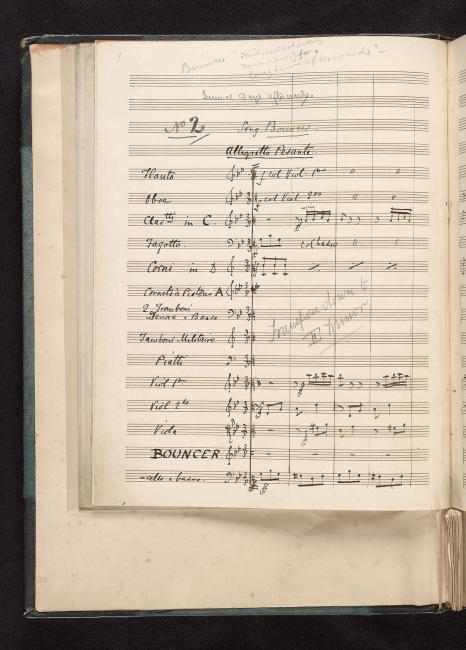 1
Bouncer
for
afterwards"
Several days afterwards.
No 2 Song. Bouncer.
Allegretto Pesante.
Flauto col Viol. 1mo " "
Oboe col Viol. 2do " "
Clartti in C.
Fagotto. col basso " "
Corni in D
Cornets à Pistons A
2 Tromboni
Tenore & Basso
Tamboro Militaire
Piatti
Transpose down to
E minor
Viol 1mo
Viol 2do
Viola
BOUNCER
cello e basso.